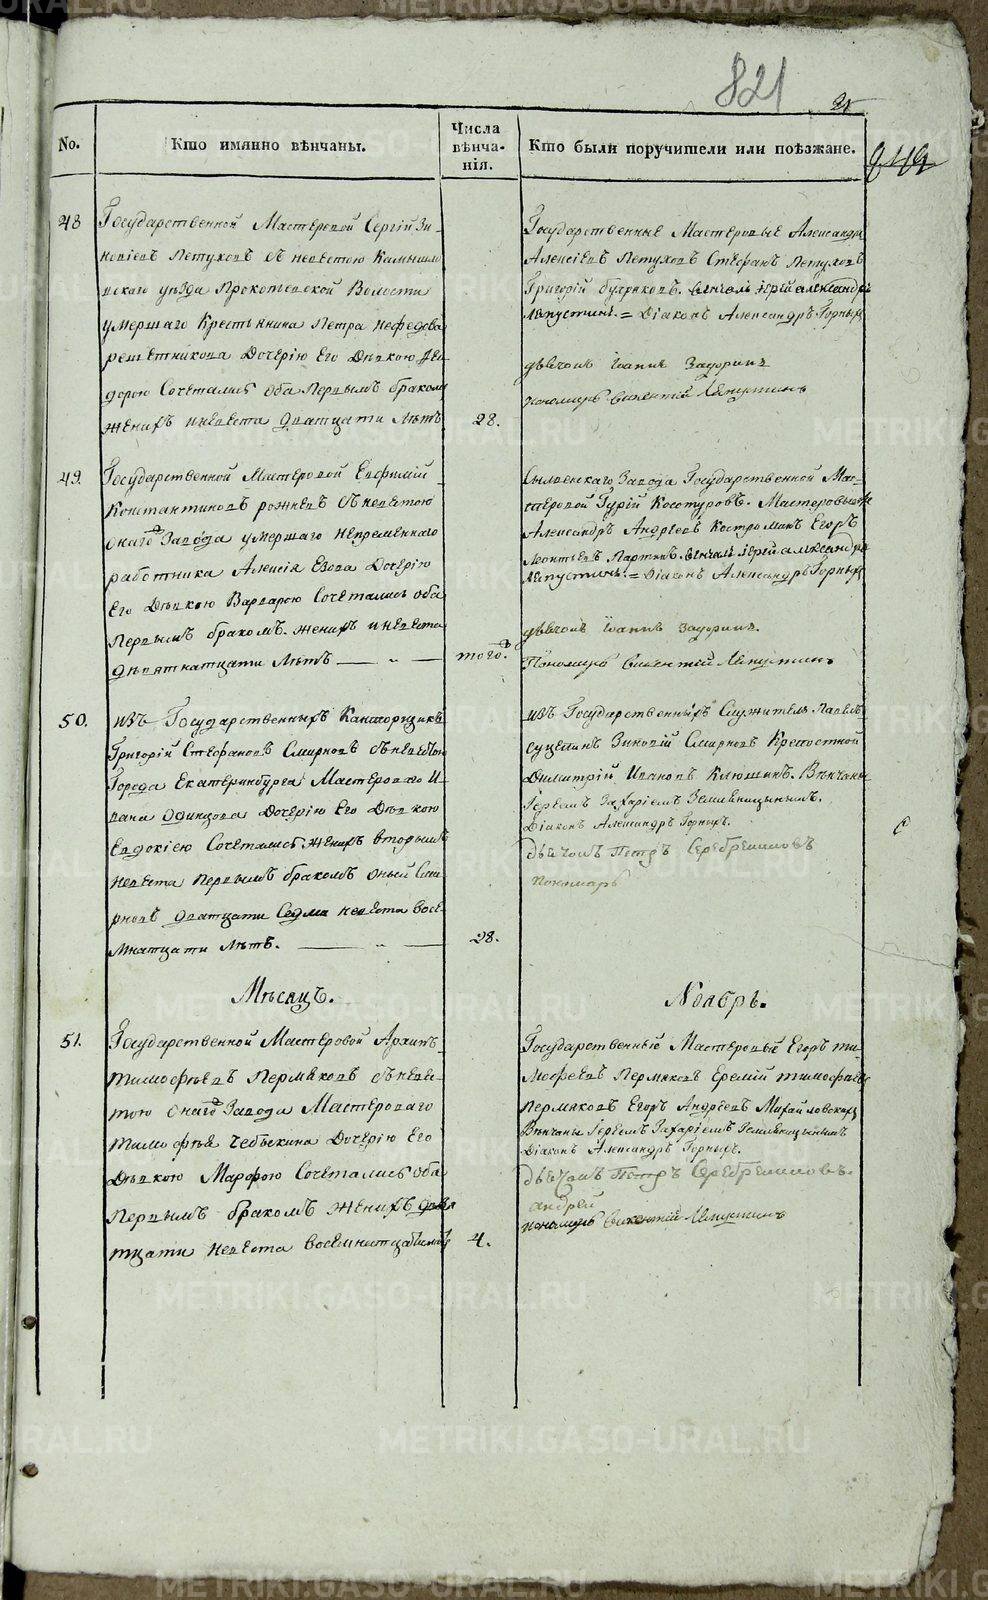 821
No.
Кто имянно вѣнчаны.
Числа
вѣнча-
нія.
Кто были поручители или поѣзжане.
48
Государственной Мастеровой Сергій Зи-
новіевъ Петуховъ съ невестою Камышло
вскаго уѣзда Прокопьевской Волости
умершаго Крестьянина Петра Нефедова
решетникова Дочерію Его Дѣвкою Фе-
дорою Сочетались оба Первымъ бракомъ
женихъ и невеста Дватцати Лѣтъ
28.
Государственные Мастеровые Александръ
Алексіевъ Петуховъ Стефанъ Петуховъ
Григорій венчалъ іерей александръ
Ляпустинъ = Діаконъ Александръ Горныхъ
дьячокъ Іоаннъ
пономарь викентій Ляпустинъ
49.
Государственной Мастеровой Евфимій
Константиновъ рожневъ съ невестою
онаго Завода умершаго непременнаго
работника Алексія Езова Дочерію
Его Дѣвкою Варварою Сочетались оба
Первымъ бракомъ. женихъ и невеста
Девятнатцати Лѣтъ — „ —
того
Сылвенскаго Завода Государственной Мас-
теровой Гурій Костуровъ. Мастеровые
Александръ Андреевъ Костроминъ Егоръ
Леонтьевъ Партинъ. венчалъ іерей александръ
Ляпустинъ = Діаконъ Александръ Горныхъ
дьячокъ Іоаннъ
Пономарь викентій Ляпустинъ
50.
изъ Государственныхъ Канторщикъ
Григорій Стефановъ Смирновъ съ невестою
Города Екатеринбурга Мастероваго И-
вана Одинцова Дочерію Его Дѣвкою
Евдокіею Сочетались женихъ вторымъ
невеста первымъ бракомъ оный Сми-
рновъ дватцати Седми невеста восе
мнатцати Лѣтъ. — „ —
28.
изъ Государственныхъ Служитель Павелъ
Зиновій Смирновъ Крепостной
Димитрій Ивановъ Клюшинъ. Вѣнчаны
Іереемъ Захаріемъ Земляницынымъ.
Діаконъ Александръ Горныхъ.
дьячокъ Петръ Серебренниковъ
пономарь
Мѣсяцъ.
Ноябрь.
51.
Государственной Мастеровой Архипъ
тимофѣевъ Пермяковъ съ невес-
тою онаго Завода Мастероваго
тимофѣя Чебыкина Дочерію Его
Дѣвкою Марфою Сочетались оба
Первымъ бракомъ женихъ два
тцати невеста восемнатцати лѣтъ
4.
Государственные Мастеровые Егоръ ти-
мофеевъ Пермяковъ Еремій тимофѣевъ
Пермяковъ Егоръ Андреевъ Михайловскихъ
Вѣнчаны Іереемъ Захаріемъ Земляницынымъ
Діаконъ Александръ Горныхъ.
дьячокъ Петръ Серебренниковъ.
андрей
пономарь викентій Ляпустинъ
METRIKI.GASO-URAL.RU